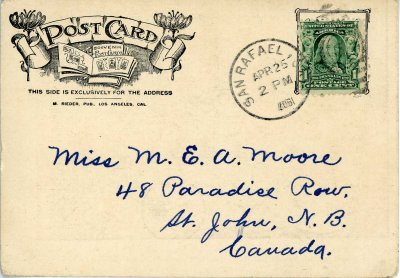 POST CARD
SOUVENIR
THIS SIDE IS EXCLUSIVELY FOR THE ADDRESS
M. RIEDER, PUB., LOS ANGELES, CAL.
SAN RAFAEL
APR 26
2 PM
1907
ONE CENT
Miss M. E. A. Moore
48 Paradise Row.
St. John, N.B.
Canada.